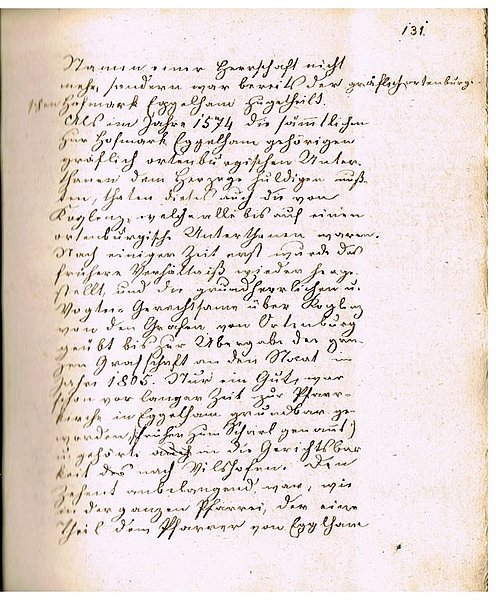 131.
Namen einer Herrschaft nicht
mehr, sondern war bereits der gräflich ortenburgi-
schen Hofmark Egglham zugetheilt.
Als im Jahre 1574 die sämmtlichen
zur Hofmark Egglham gehörigen
gräflich ortenburgischen Unter-
thanen dem Herzoge huldigen muß-
ten, thaten dieses auch die von
Koglenz, welche alle bis auf einen
ortenburgische Unterthanen waren.
Nach einiger Zeit erst wurde das
frühere Verhältniß wieder herge-
stellt und die grundherrlichen u.
Vogtei-Gerechtsame über
von den Grafen von Ortenburg
geübt bis zur Übergabe der gan-
zen Grafschaft an den Staat im
Jahre 1805. Nur ein Gut war
schon vor langer Zeit zur Pfarr-
kirche in Eggelham grundbar ge-
worden, (früher zum genannt)
u. gehörte auch in die Gerichtsbar-
keit des nach Vilshofen. Den
Zehent anbelangend war, wie
in der ganzen Pfarrei, der eine
Theil dem Pfarrer von Egglham